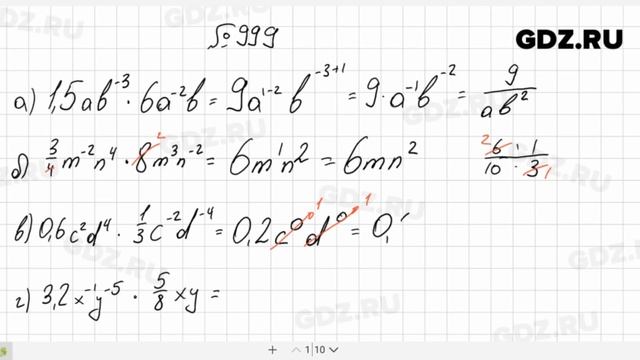 №999
GDZ.RU
а) 1,5ab⁻³ · 6a⁻²b = 9a¹⁻² b⁻³⁺¹ = 9·a⁻¹b⁻² = 9/ab²
б) 3/4 m⁻²n⁴ · 8m³n⁻² = 6m¹n² = 6mn²
2
6 · 1 / 10 · 3
2 1
в) 0,6c²d⁴ · 1/3 c⁻²d⁻⁴ = 0,2c⁰d⁰ = 0,
1 1
г) 3,2x⁻¹y⁻⁵ · 5/8 xy =
1|10